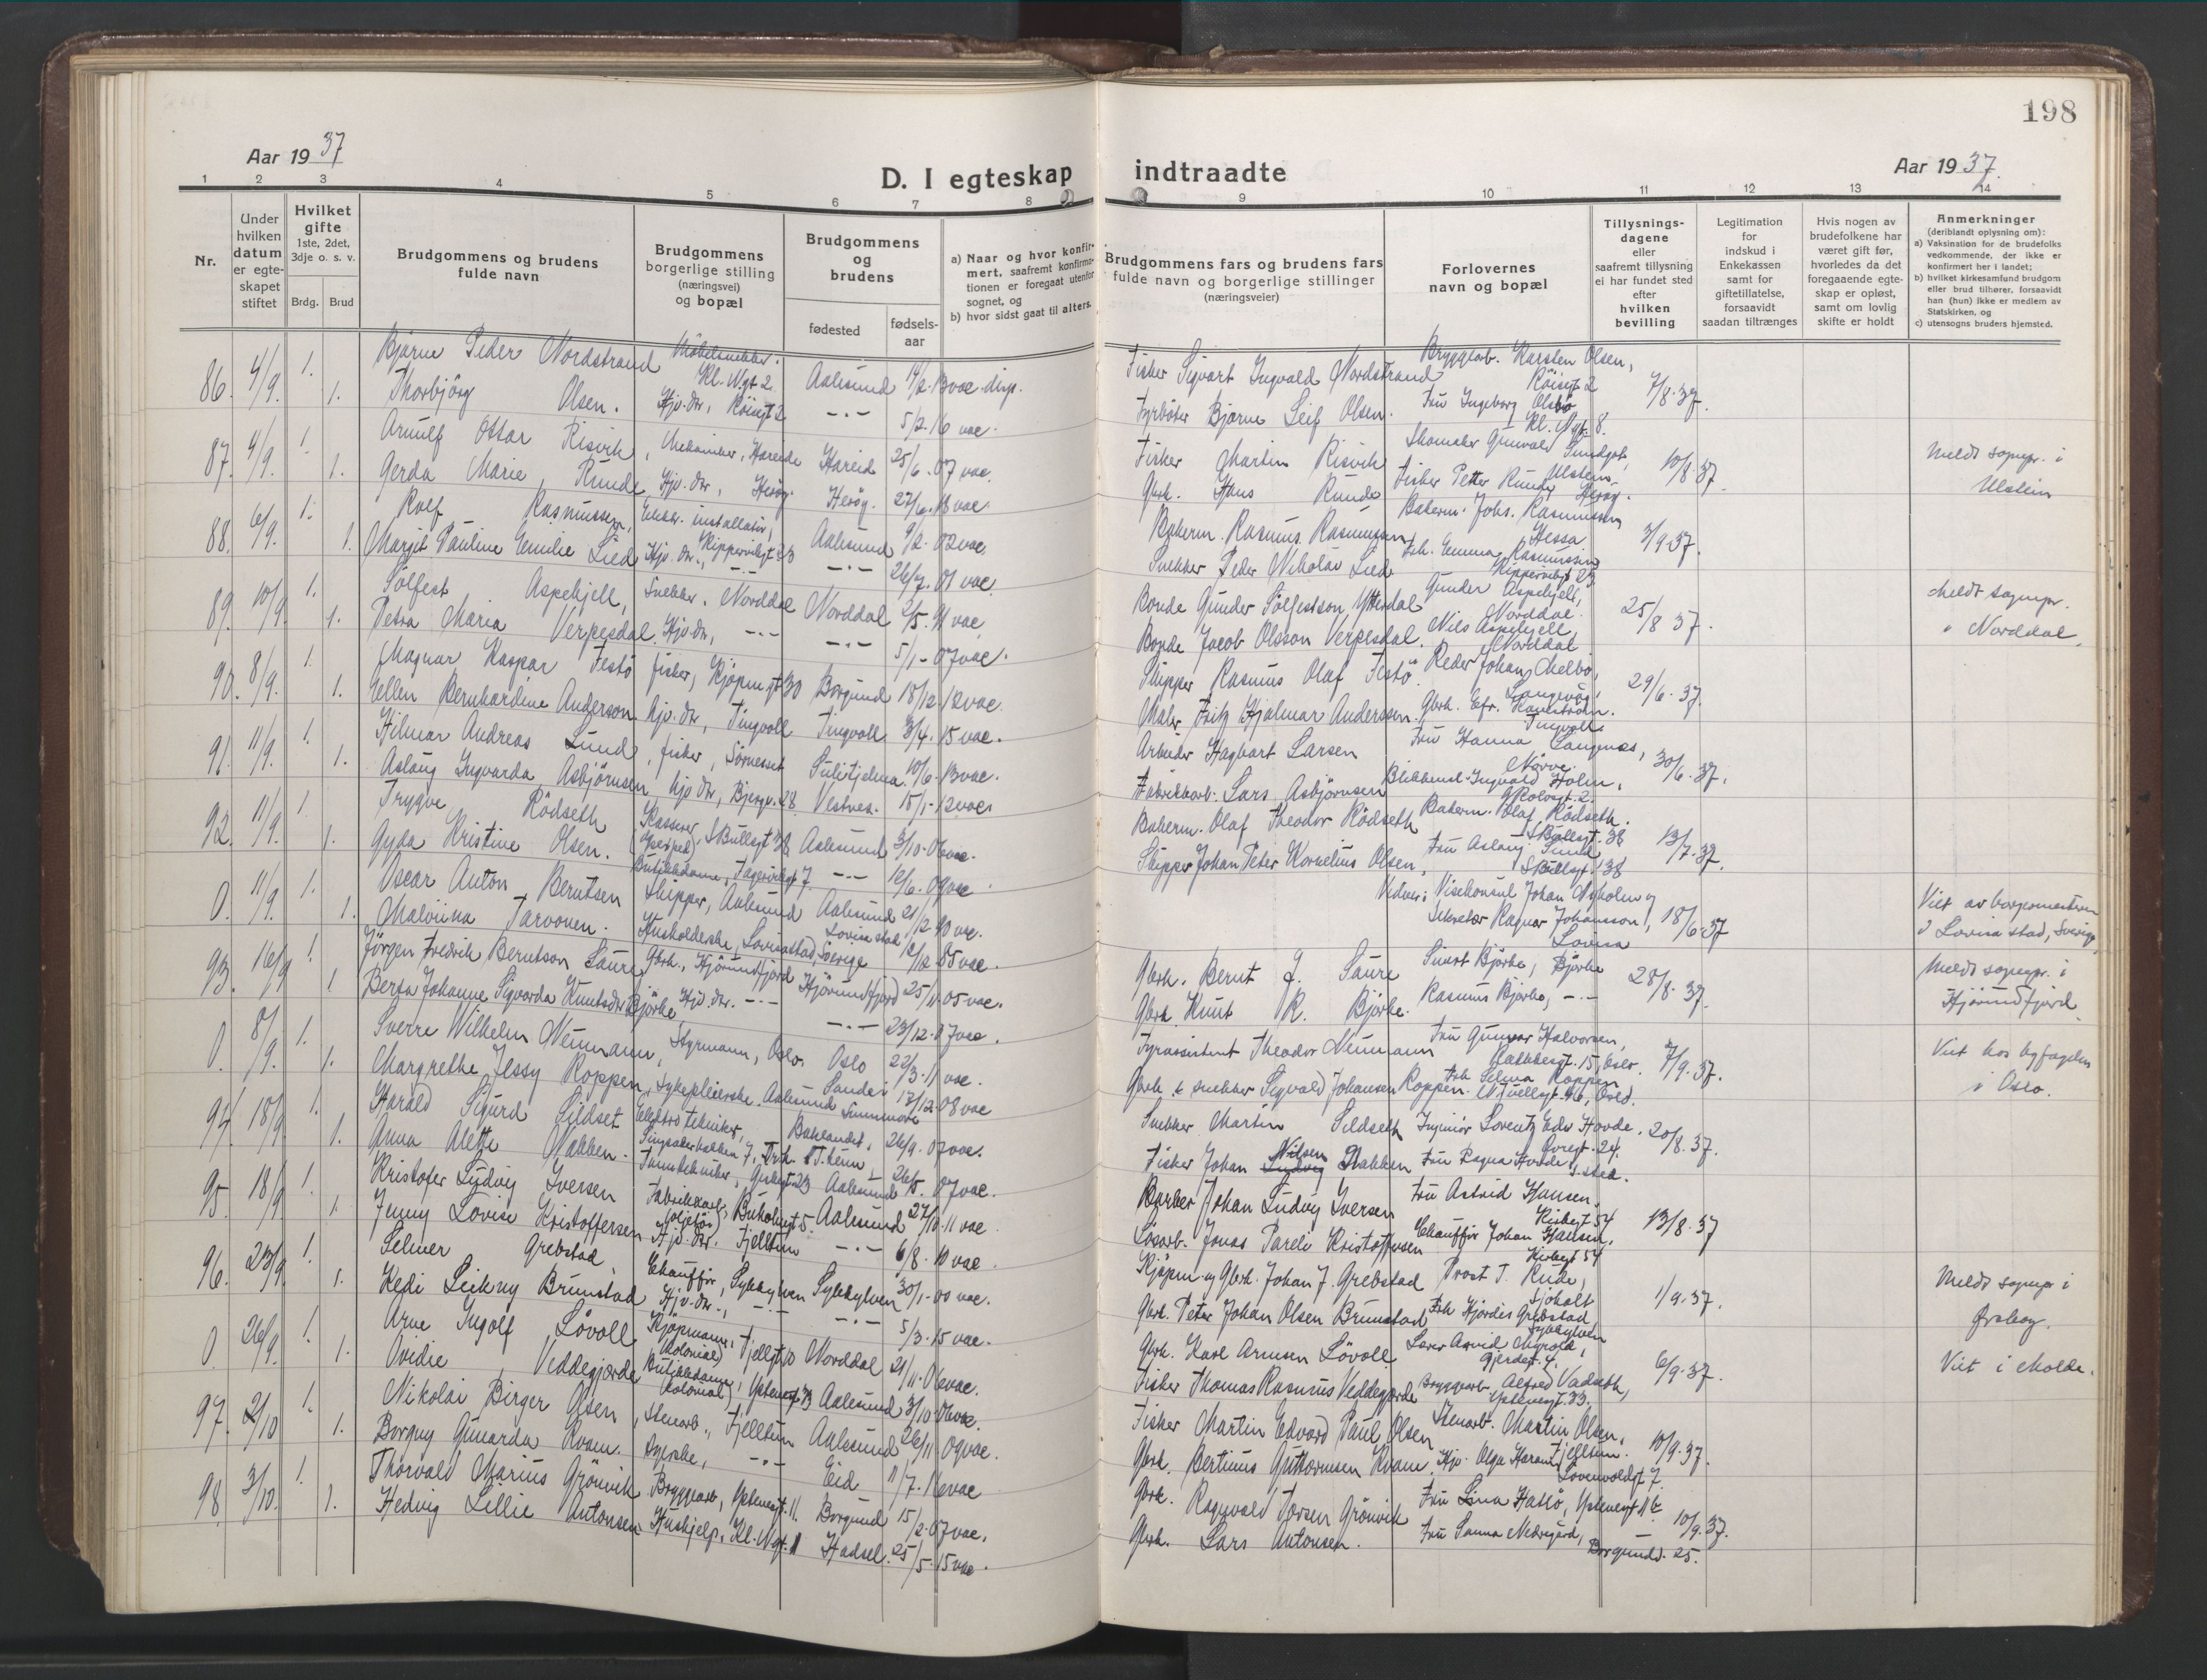 198
Aar 1937
D. I egteskap indtraadte
Aar 1937.
1 2 3 4 5 6 7 8 9 10 11 12 13 14
Nr.
Under hvilken datum er egte-skapet stiftet
Hvilket gifte
1ste, 2det, 3dje o. s. v.
Brdg. Brud
Brudgommens og brudens fulde navn
Brudgommens borgerlige stilling (næringsvei) og bopæl
Brudgommens og brudens
fødested
fødsels-aar
a) Naar og hvor konfir-mert, saafremt konfirma-tionen er foregaat utenfor sognet, og
b) hvor sidst gaat til alters.
Brudgommens fars og brudens fars fulde navn og borgerlige stillinger (næringsveier)
Forlovernes navn og bopæl
Tillysnings-dagene eller saafremt tillysning ei har fundet sted efter hvilken bevilling
Legitimation for indskud i Enkekassen samt for giftetillatelse, forsaavidt saadan tiltrænges
Hvis nogen av brudefolkene har været gift før, hvorledes da det foregaaende egte-skap er opløst, samt om lovlig skifte er holdt
Anmerkninger
(deriblandt oplysning om):
a) Vaksination for de brudefolks vedkommende, der ikke er konfirmert her i landet;
b) hvilket kirkesamfund brudgom eller brud tilhører, forsaavidt han (hun) ikke er medlem av Statskirken, og
c) utensogns bruders hjemsted.
86. 4/9. 1. Bjarne Peder Nordstrand Møbelsnekker. Kl. Ngt 2. Aalesund 14/2. 13 vac. disp. Fisker Sigvart Ingvald Nordstrand Bryggearb. Karsten Olsen, Röisgt 2 7/8-37.
1. Thorbjörg Olsen. Hjv. dtr, Röisgt 2 -"- 5/2. 16 vac. Fyrböter Bjarne Leif Olsen. Fru Ingeborg Olsbö Kl. Ngt. 8.
87. 4/9. 1. Arnulf Ottar Risvik, Mekaniker, Hareide Hareid 25/6. 07 vac. Fisker Martin Risvik Skomaker Gunvald Sundgot, Ulstein. 10/8-37 Meldt sognepr. i Ulstein
1. Gerda Marie Runde, Hjv. dtr, Heröy. Heröy. 27/6. 18 vac. Gbrk. Hans Runde Fisker Petter Runde Heröy.
88. 6/9. 1. Rolf Rasmussen, Elektr. installatör, Kippervikgt 23 Aalesund 9/2. 02 vac. Bakerm. Rasmus Rasmussen Bakerm. Johs. Rasmussen Hessa 3/9-37.
1. Margit Pauline Emilie Lied Hjv. dtr., -"- -"- 26/7. 01 vac. Snekker Peder Nikolai Lied Frk. Emma Rasmussen Kippervikgt 23.
89. 10/9. 1. Sölfest Aspehjell, Snekker. Norddal Norddal 2/5. 91 vac. Bonde Gunder Sölfestson Ytterdal Gunder Aspehjell, Norddal. 25/8 37. Meldt sognepr. i Norddal.
1. Petra Maria Verpesdal. Hjv. dtr, -"- -"- 5/1- 07 vac. Bonde Jacob Olsson Verpesdal. Nils Aspehjell Norddal
90. 8/9. 1. Magnar Kaspar Festö fisker, Kjöpmgt 30 Borgund 18/12. 12 vac. Skipper Rasmus Olaf Festö Reder Johan Melbö, Langevåg. 29/6-37.
1. Ellen Bernhardine Anderson. Hjv. dtr, Tingvoll Tingvoll 3/4. 15 vac. Maler Fritz Hjalmar Anderssen. Gbrk. Efr. Kamsvåhn. Tingvoll
91. 11/9. 1. Hilmar Andreas Lund, fisker, Sörnesset Sulitjelma 10/6. 13 vac. Arbeider Hagbart Larsen Fru Hanna Langnes, Nörve. 30/6-37.
1. Aslaug Ingvarda Asbjörnsen hjv dtr, Bjergv. 28. Vestnes. 15/1- 12 vac. Fabrikkarb. Lars Asbjörnsen Blikkensl. Ingvald Holm,
92. 11/9. 1. Trygve Rödseth Kasserer Skullegt 38 Aalesund 3/10. 06 vac. Bakerm. Olaf Theodor Rödseth Bakerm. Olaf Rödseth. Skullegt. 38 13/7-37.
1. Gyda Kristine Olsen. Butikkdame, 7. -"- 12/6. 09 vac. Skipper Johan Peter Kornelius Olsen, Fru Aslaug Lund Skullegt. 38
0. 11/9. 1. Oscar Anton Berntsen Skipper, Aalesund Aalesund 21/12 90 vac. Vidner: Visekonsul Johan Nyholm og 18/6-37 Viet av borgermesteren
1. Malviina Tarvonen. Husholderske, Lovisa stad, Sverige Lovisa stad 12/12. 85 vac. Sekretær Ragnar Johansson, Lovisa i Lovisa stad, Sverige
93. 16/9 1. Jörgen Fredrik Berntson Saure Gbrk., Hjörundfjord Hjörundfjord 25/11. 05 vac. Gbrk. Bernt J. Saure Sivert Björke, Björke 28/8. 37. Meldt sognepr. i Hjörundfjord.
1 Berta Johanne Sigvarda Knutsdtr Björke Hjv. dtr. -"- -"- 23/12. 17 vac. Gbrk. Knut R. Björke. Rasmus Björke, -"-
0. 8/9. 1. Sverre Wilhelm Neumann, Styrmann, Oslo. Oslo 22/3. 11 vac. Fyrassistent Theodor Neumann Fru Gunvor Halvorsen, 15, Oslo. 7/9-37. Viet hos byfogden i Oslo.
1. Margrethe Jessy Roppen, Sykepleierske. Aalesund Sande i Sunnmöre 17/12. 08 vac Gbrk. & snekker Sigvald Johansen Roppen. Frk. Selma Roppen 46, Oslo.
94. 18/9. 1. Harald Sigurd Sildset Elektrotekniker, Bakelandet, T.heim 26/9. 07 vac. Snekker Martin Sildseth Ingeniör Lorentz Edv Hovde. 24. 20/8-37.
1. Anna Alette Nakken. Aalesund 26/5. 07 vac. Fisker Johan Nilsen Nakken Fru Ragna Hovde, s. sted.
95. 18/9 1. Kristofer Ludvig Iversen Fabrikkarb., Bukoltgt 5. Aalesund 27/10. 11 vac. Barber Johan Ludvig Iversen Fru Astrid Hansen, Kirkegt 54 13/8-37
1. Jenny Lovise Kristoffersen Hjv. dtr. Fjelltun -"- 6/8. 10 vac. Lösarb. Jonas Pareli Kristoffersen Chaufför Johan Hansen, Kirkegt 54
96. 23/9. 1. Selmer Grebstad, Chaufför, Sykkylven Sykkylven 30/1- 00 vac. Kjöpm. og Gbrk. Johan J. Grebstad Prost T. Rude, Sjoholt 1/9-37. Meldt sognepr i Örskog.
1. Kedi Leikny Brunstad Hjv. dtr., -"- -"- 5/3. 15 vac. Gbrk. Peter Johan Olsen Brunstad Frk Hjördis Grebstad Sykkylven
0. 26/9. 1. Arne Ingolf Lövoll Kjöpmann, (Kolonial) Fjellgt 10 Norddal 21/11. 06 vac. Gbrk. Karl Arnesen Lövoll Lærer Arvid Myrold, Gjerdet. 4. 6/9-37. Viet i Molde.
1. Ovidie Veddegjerde Butikkdame, (kolonial) Aalesund 3/10. 06 vac. Fisker Thomas Rasmus Veddegjerde Bryggearb. Alfred Vadseth, 33.
97. 2/10 1. Nikolai Birger Olsen, Stenarb., Fjelltun Aalesund 26/11 09 vac. Fisker Martin Edvard Paul Olsen Stenarb. Martin Olsen, Fjelltun. 10/9-37.
1. Borgny Gunarda Kvam. Syerske, -"- Eid 11/7. 16 vac Gbrk. Bertinus Guttormsen Kvam. Hjv. Olga Haram, Lövenvoldgt 7.
98. 3/10. 1. Thorvald Marius Grönvik Bryggearb, Ystenesgt. 11. Borgund 15/2. 07 vac. Gbrk. Ragnvald Torsen Grönvik Fru Lina Hatlö, Ystenesgt 11b 10/9. 37.
1. Hedvig Lillie Antonsen Hushjelp. Kl. Ngt. 11 Hadsel. 25/5. 15 vac. Gbrk. Lars Antonsen. Fru Sanna Nedregård, Borgundv. 25.